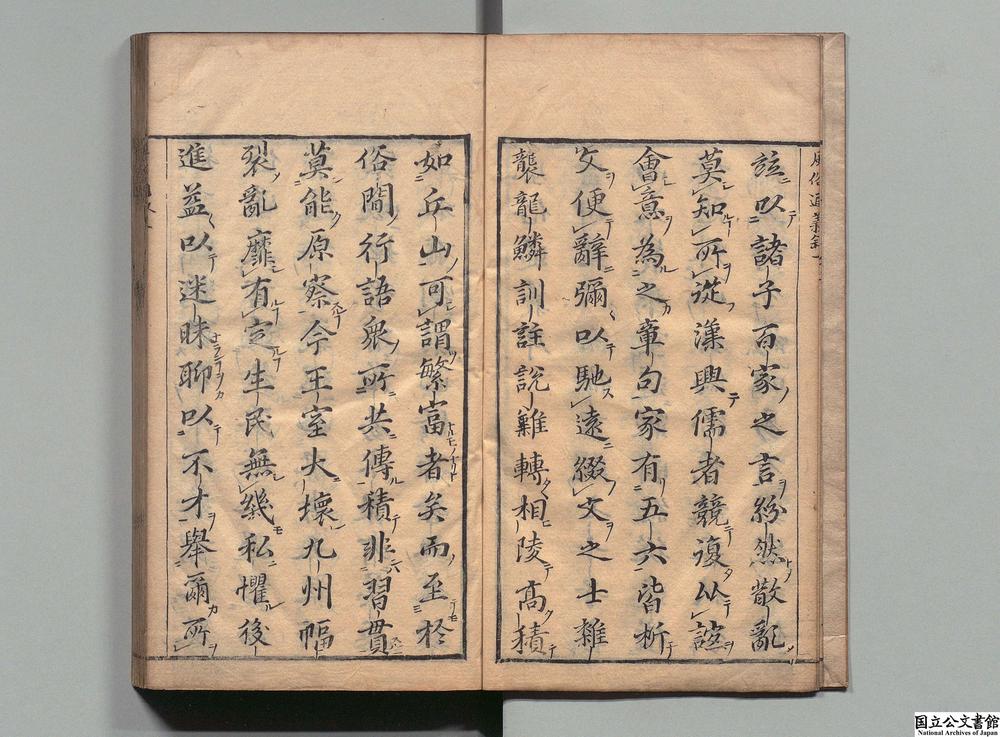 竝以諸子百家之言紛然散亂
莫知所從漢興儒者競復从誼
會意為之章句家有五六皆析
文便辭彌以馳遠綴文之士雜
襲龍鱗訓註說難轉相陵高積
如丘山可謂繁富者矣而至於
俗間行語衆所共傳積非習貫
莫能原察今王室大壞九州幅
裂亂靡有定生民無幾私懼後
進益以迷昧聊以不才舉爾所
国立公文書館
National Archives of Japan